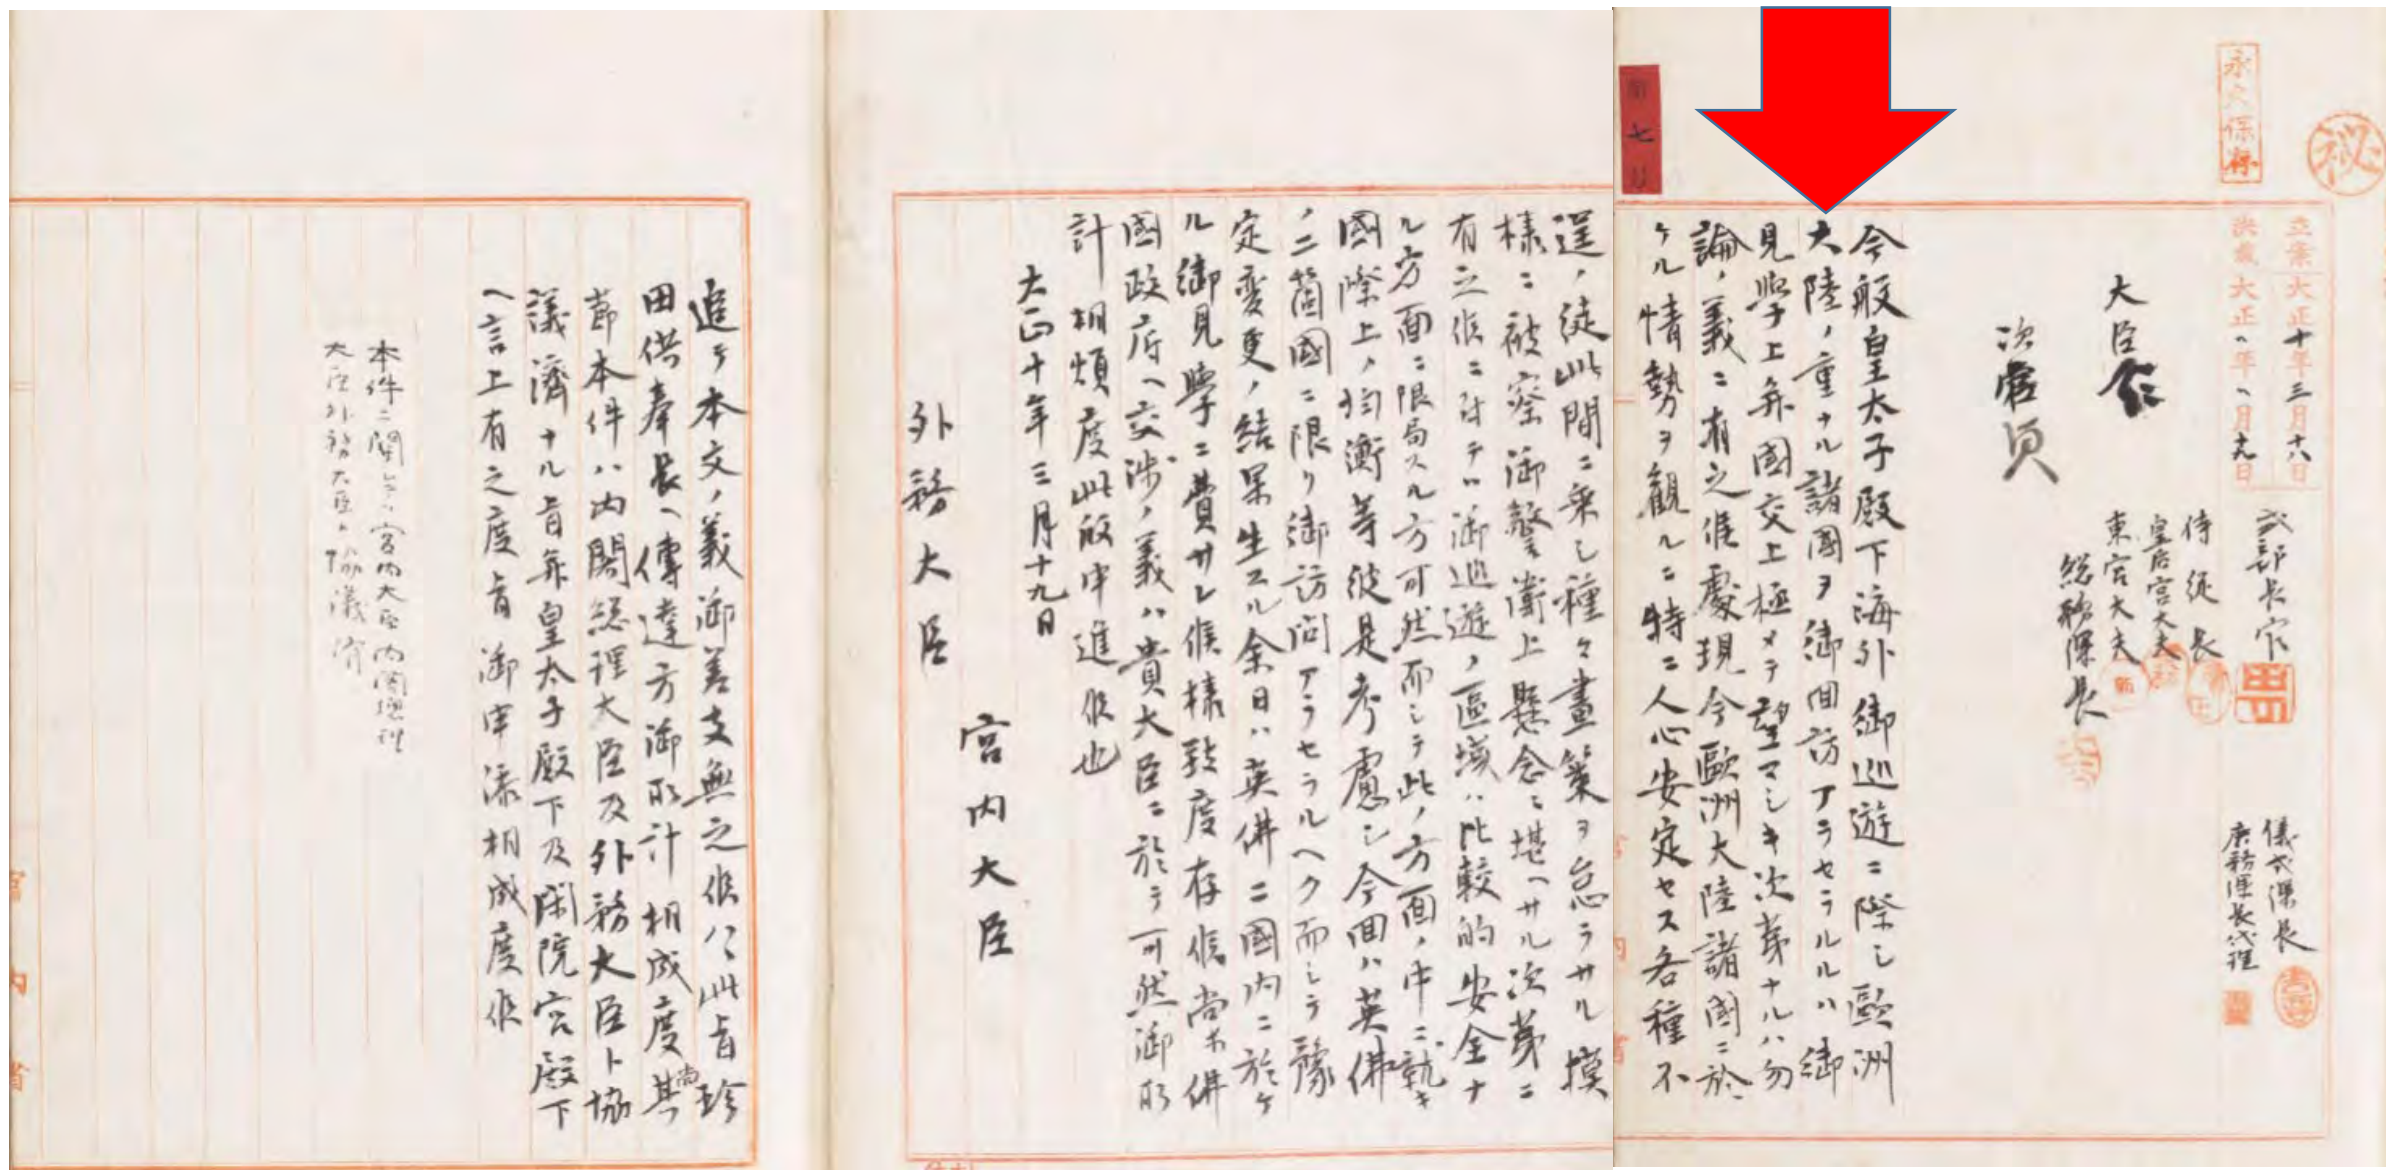 秘
永久保存
立案大正十年三月十八日
決裁大正 年 月十九日
式部長官
侍従長
皇后宮大夫
東宮大夫
総務課長
儀式課長
庶務課長代理
大臣
次官
第七号
今般皇太子殿下海外御巡遊ニ際シ歐洲
大陸ノ重ナル諸國ヲ御囘訪アラセラルルハ御
見學上并國交上極メテ望マシキ次第ナルハ勿
論ノ義ニ有之候處現今歐洲大陸諸國ニ於
ケル情勢ヲ観ルニ特ニ人心安定セス各種不
逞ノ徒此間ニ乗シ種々畫策ヲ怠ラサル摸
様ニ被察御警衛上懸念ニ堪ヘサル次第ニ
有之候ニ付テハ御巡遊ノ區域ハ比較的安全ナ
ル方面ニ限局スル方可然而シテ此ノ方面ノ中ニ就キ
國際上ノ均衡等彼是考慮シ今囘ハ英佛
ノ二箇國ニ限リ御訪问アラセラルヘク而シテ豫
定変更ノ結果生スル余日ハ英佛二國内ニ於ケ
ル御見學ニ費サレ候様致度存候尚ホ佛
國政府ヘ交渉ノ義ハ貴大臣ニ於テ可然御取
計相煩度此段申進候也
大正十年三月十九日
宮内大臣
外務大臣
追テ本文ノ義御差支無之候ハハ此旨珍
田供奉長ヘ傳達方御取計相成度尚其
節本件ハ内閣総理大臣及外務大臣ト協
議濟ナル旨并皇太子殿下及閑院宮殿下
ヘ言上有之度旨御申添相成度候
本件ニ関シテハ宮内大臣内閣総理
大臣外務大臣ト協議済
宮内省